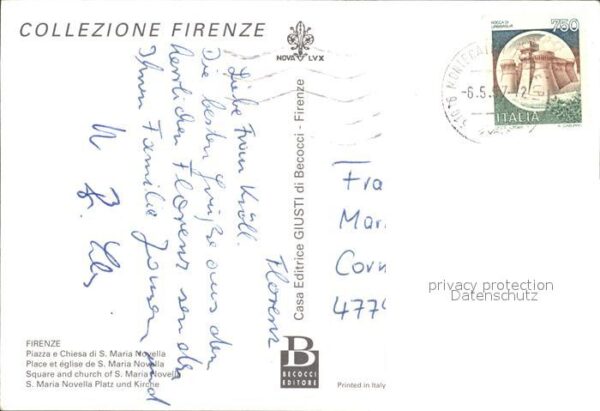 COLLEZIONE FIRENZE
NOVA LVX
ROCCA DI URBISAGLIA
750
ITALIA
51016 MONTECAT
-6.5.97-12
Florenz
Liebe Frau Kroll.
Die besten Grüße aus dem
herrlichen Florenz senden
Ihnen Familie Jansen und
Fra
Mar
Corn
4779
privacy protection
Datenschutz
Casa Editrice GIUSTI di Becocci - Firenze
FIRENZE
Piazza e Chiesa di S. Maria Novella
Place et église de S. Maria Novella
Square and church of S. Maria Novella
S. Maria Novella Platz und Kirche
B
BECOCCI
EDITORE
Printed in Italy